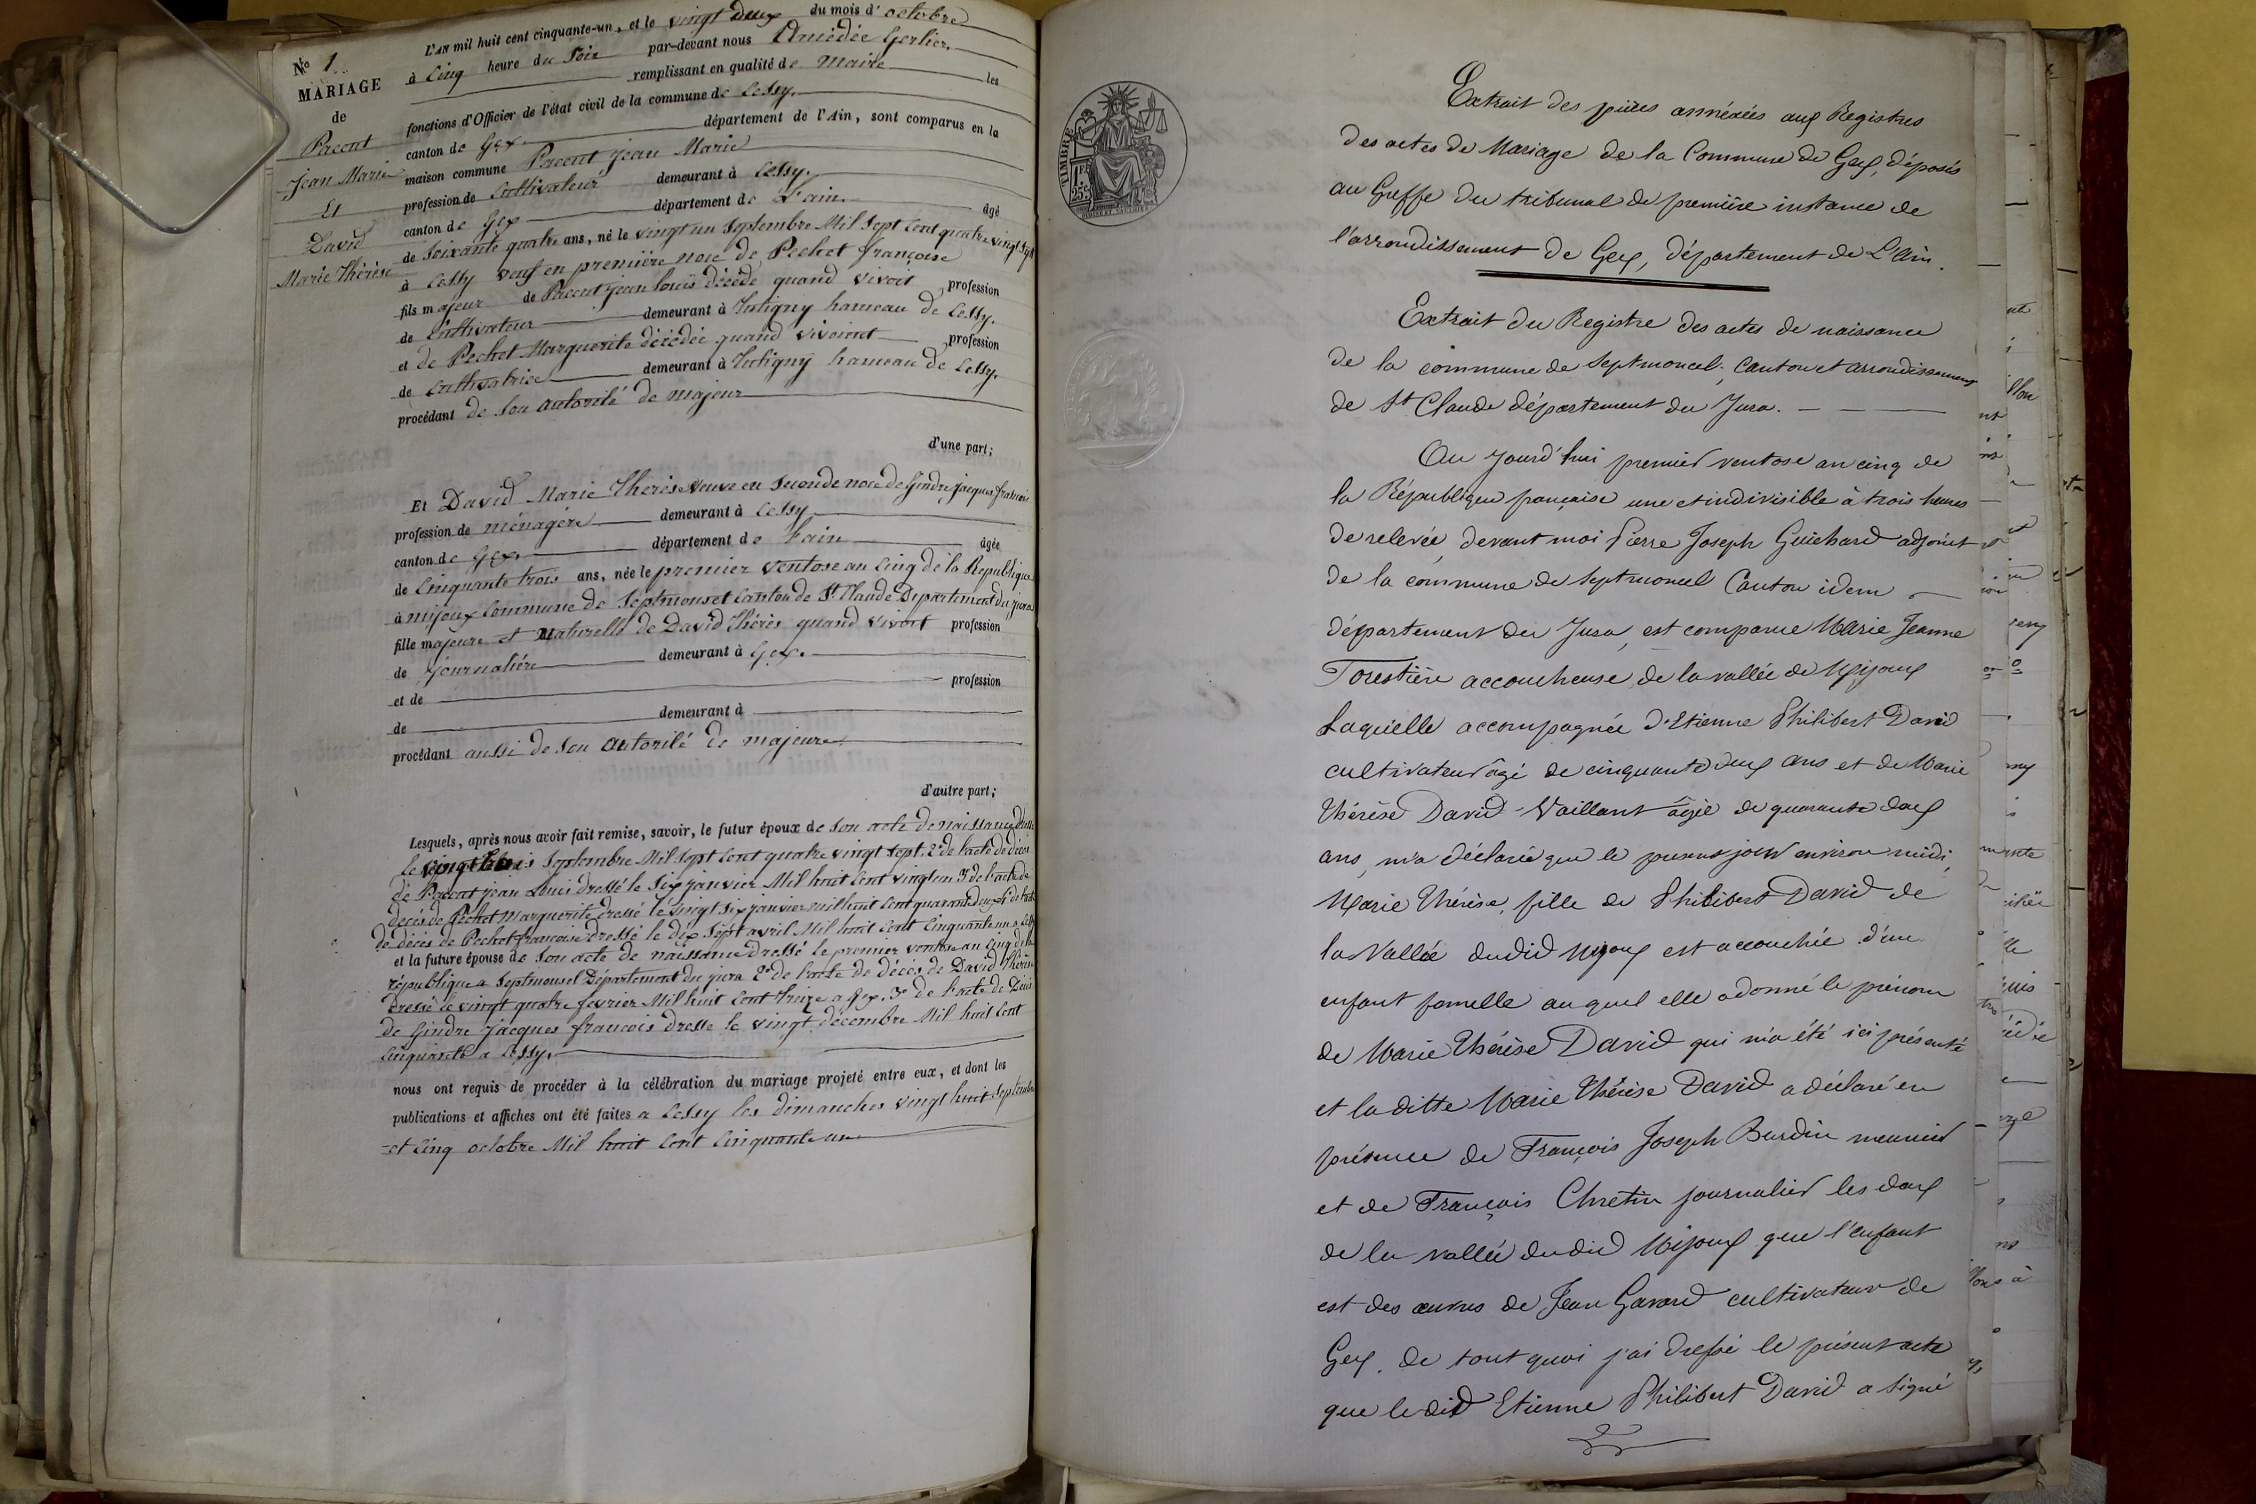 No 1
MARIAGE
de
Pacout
Jean Marie
Et
David
Marie Thérèse
L'AN mil huit cent cinquante-un, et le vingt deux du mois d'octobre
à cinq heure du soir par-devant nous Amédée Gerlier
remplissant en qualité de maire les
fonctions d'Officier de l'état civil de la commune de Cessy
canton de Gex département de l'Ain, sont comparus en la
maison commune Pacout Jean Marie
profession de Cultivateur demeurant à Cessy.
canton de Gex département de L'ain. âgé
de Soixante quatre ans, né le vingt un Septembre Mil Sept Cent quatre vingt sept
à Cessy veuf en première noce de Pechet françoise
fils majeur de Pacout jean louis décédé quand vivoit profession
de Cultivateur demeurant à Tutigny hameau de Cessy.
et de Pechet Marguerite décédée quand vivoient profession
de Cultivatrice demeurant à Tutigny hameau de Cessy.
procédant de son autorité de majeur
d'une part;
Et David Marie Thérèse veuve en Seconde noce de Gindre jacques francois
profession de ménagère demeurant à Cessy
canton de Gex département de l'ain âgée
de Cinquante trois ans, née le premier ventose an Cinq de la République
à mijoux Commune de Septmoncel Canton de St. Claude Département du jura
fille majeure et Naturelle de David Thérès quand vivoit profession
de journalière demeurant à Gex.
et de profession
de demeurant à
procédant aussi de son autorité de majeure
d'autre part;
Lesquels, après nous avoir fait remise, savoir, le futur époux de son acte de naissance
le vingt Septembre Mil Sept Cent quatre vingt sept. 2° de l'acte de décès
de Pacout jean Louis dressé le Six janvier Mil huit Cent vingt un 3° de l'acte de
décès de Pechet Marguerite dressé le vingt Six janvier mil huit Cent quarante deux 4° de l'acte
de décès de Pechet francoise dressé le dix Sept avril Mil huit Cent Cinquante un a Cessy
et la future épouse de son acte de naissance dressé le premier ventose an Cinq de la
république a Septmoncel Département du jura 2° de l'acte de décès de David Thérèse
dressé le vingt quatre fevrier Mil huit Cent treize a Gex. 3° de l'acte de Décès
de Gindre jacques francois dresse le vingt décembre Mil huit Cent
Cinquante a Cessy.
nous ont requis de procéder à la célébration du mariage projeté entre eux, et dont les
publications et affiches ont été faites a Cessy les dimanches vingt huit Septembre
et Cinq octobre Mil huit Cent Cinquante un
TIMBRE
25c
Extrait des pièces annéxées aux Registres
des actes de Mariage de la Commune de Gex, déposés
au Greffe du tribunal de première instance de
l'arrondissement de Gex, département de L'Ain.
Extrait du Registre des actes de naissance
de la commune de Septmoncel, Canton et arrondissement
de St Claude département du Jura.
Au jourd'hui premier ventose an cinq de
la République française une et indivisible à trois heures
de relevée, devant moi Pierre Joseph Guichard adjoint
de la commune de Septmoncel Canton idem
département du Jura, est comparue Marie Jeanne
Forestière accoucheuse de la vallée de Mijoux
Laquelle accompagnée d'Etienne Philibert David
cultivateur âgé de cinquante deux ans et de Marie
Thérèse David-Vaillant âgée de quarante deux
ans, m'a déclarée que le jour environ midi,
Marie Thérèse, fille de Philibert David de
la Vallée dudid Mijoux est accouchée d'un
enfant femelle auquel elle a donné le prénom
de Marie Thérèse David qui m'a été ici présenté
et la ditte Marie Thérèse David a déclaré en
présence de François Joseph Burdin meunier
et de François Chretin journalier les deux
de la vallée dudid Mijoux que l'enfant
est des œuvres de Jean Gavard cultivateur de
Gex. de tout quoi j'ai dressé le présent acte
que le did Etienne Philibert David a signé